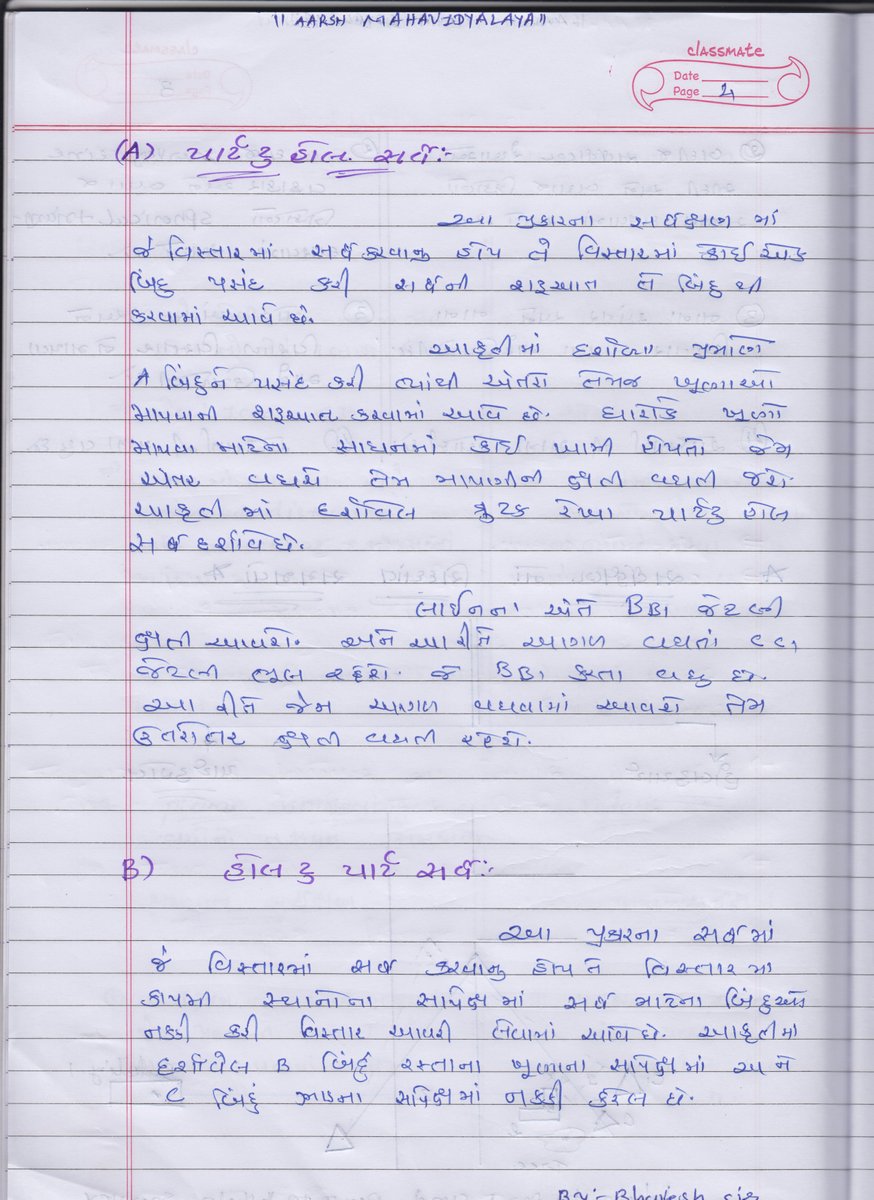 || AARSH MAHAVIDYALAYA ||
classmate
Date
Page 4
(A) પાર્ટ ટુ હોલ સર્વે:-
આ પ્રકારના સર્વેક્ષણ માં
જે વિસ્તારમાં સર્વે કરવાનુ હોય તે વિસ્તારમાં કોઈ એક
બિંદુ પસંદ કરી સર્વેની શરૂઆત તે બિંદુ થી
કરવામાં આવે છે.
આકૃતીમાં દર્શાવ્યા પ્રમાણે
A બિંદુને પસંદ કરી ત્યાંથી અંતરો તેમજ ખૂણાઓ
માપવાની શરૂઆત કરવામાં આવે છે. ધારોકે ખૂણો
માપવા માટેના સાધનમાં કોઈ ખામી હોયતો જેમ
અંતર વધશે તેમ માપણીની ક્ષતી વધતી જશે.
આકૃતી માં દર્શાવેલ ત્રુટક રેખા પાર્ટટુ હોલ
સર્વે દર્શાવે છે.
લાઈનના અંતે BB1 જેટલી
ક્ષતી આવશે. અને આ રીતે આગળ વધતાં CC1
જેટલી ભૂલ રહેશે. જે BB1 કરતા વધુ છે.
આ રીતે જેમ આગળ વધવામાં આવશે તેમ
ઉતરોતર ક્ષતી વધતી રહેશે.
B) હોલ ટુ પાર્ટ સર્વે:-
આ પ્રકારના સર્વેમાં
જે વિસ્તારમાં સર્વે કરવાનુ હોય તે વિસ્તારમાં
કાયમી સ્થાનોના સાપેક્ષ માં સર્વે માટેના બિંદુઓ
નક્કી કરી વિસ્તાર આવરી લેવામાં આવે છે. આકૃતીમાં
દર્શાવેલ B બિંદુ રસ્તાના ખૂણાના સાપેક્ષ માં અને
C બિંદુ ઝાડના સાપેક્ષમાં નક્કી કરેલ છે.
By:- Bhavesh